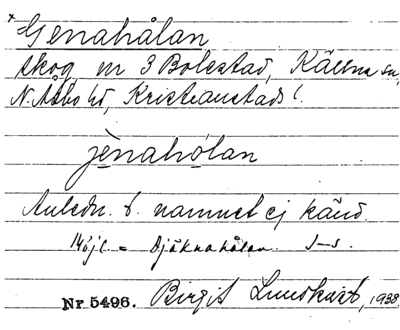 × Genahålan
skog, nr 3 Bolestad, Källna sn,
N. Åsbo hd, Kristianstads l.
jènahólan
Anledn. t. namnet ej känd.
= Djäknahålan. J-s.
Nr 5496. Birgit Lundkvist, 1938